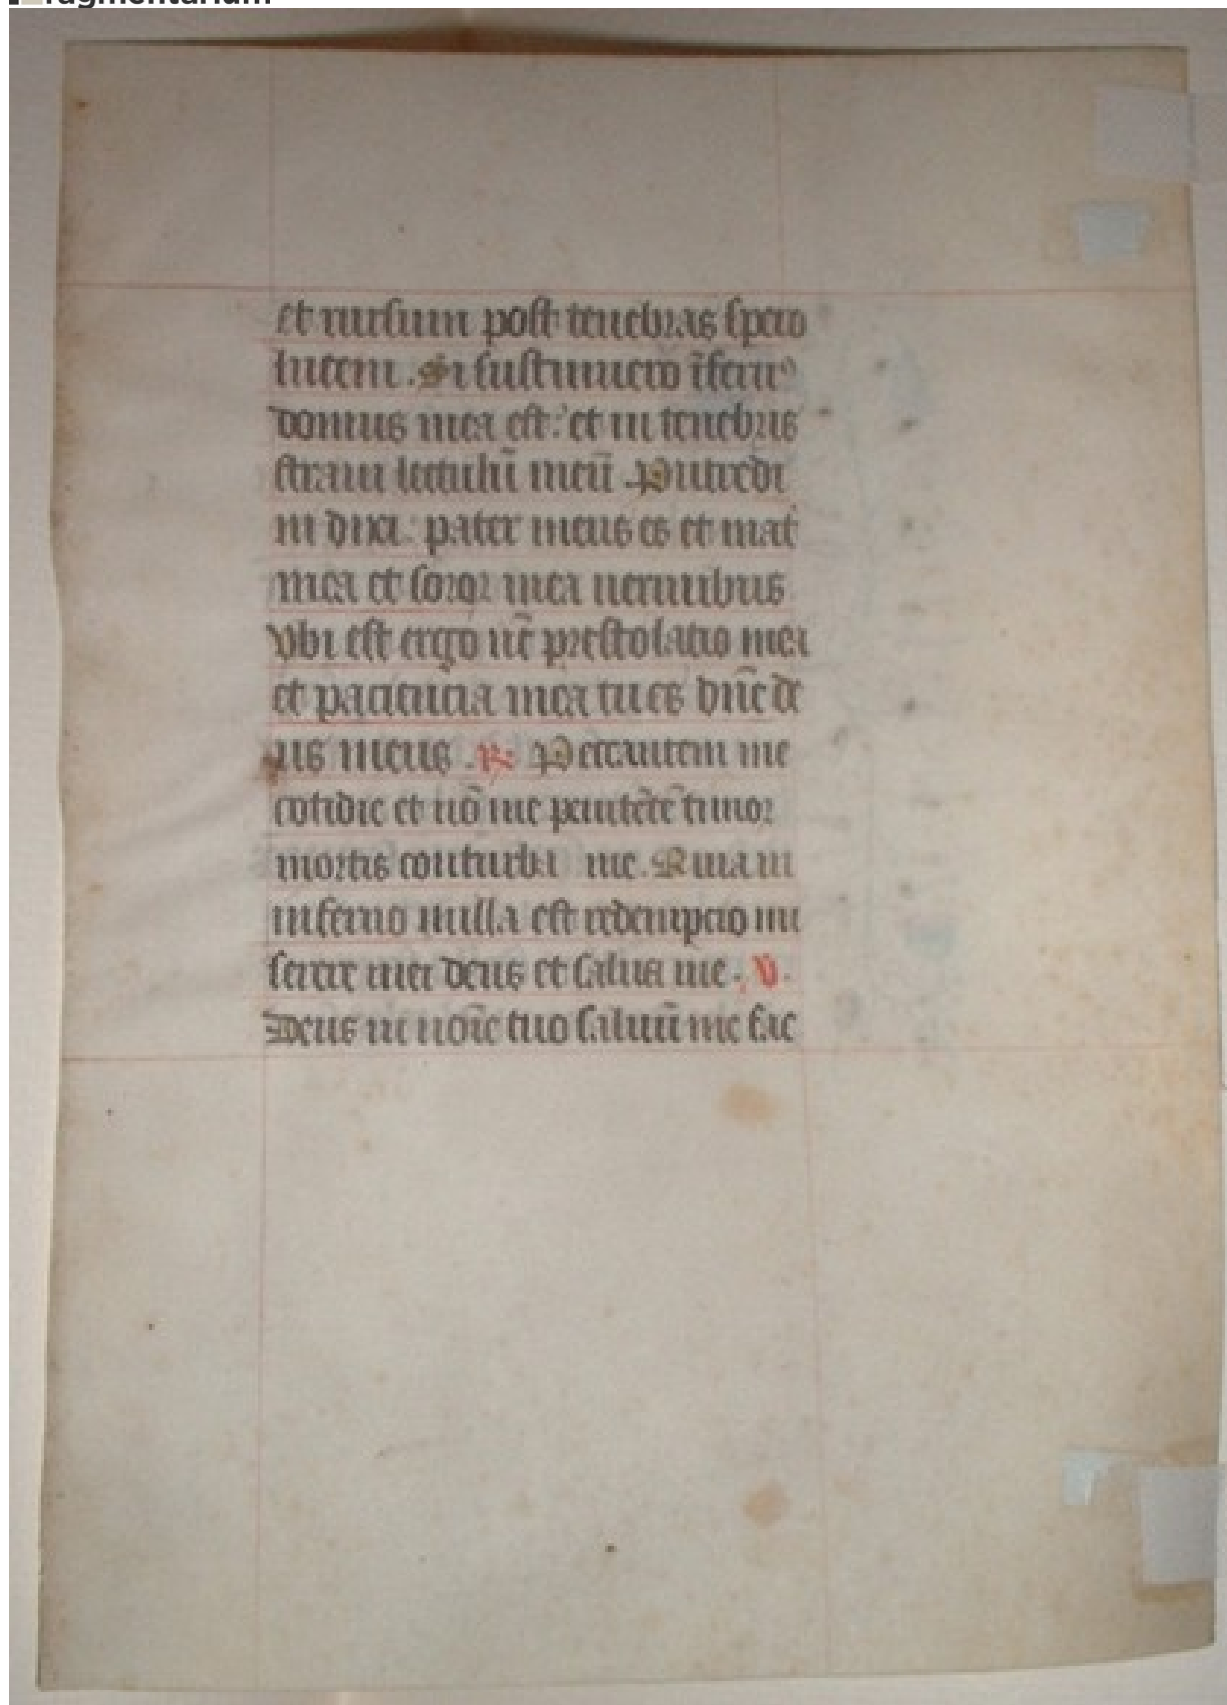 ragmentarium
et rursum post tenebras spero
lucem. Si sustinuero īfern᷒
domus mea est: et in tenebris
straui lectulū meū. Putredi
ni dixi: pater meus es et mat᷑
mea et soror mea uermibus
Vbi est ergo nc̄ prestolatio mea
et paciencia mea tu es dn̄e de
us meus. R. Peccantem me
cotidie et nō me penitētē timor
mortis conturba me. Quia in
inferno nulla est redempcio mi
serere mei deus et salua me. V.
Deus in noīe tuo saluū me fac